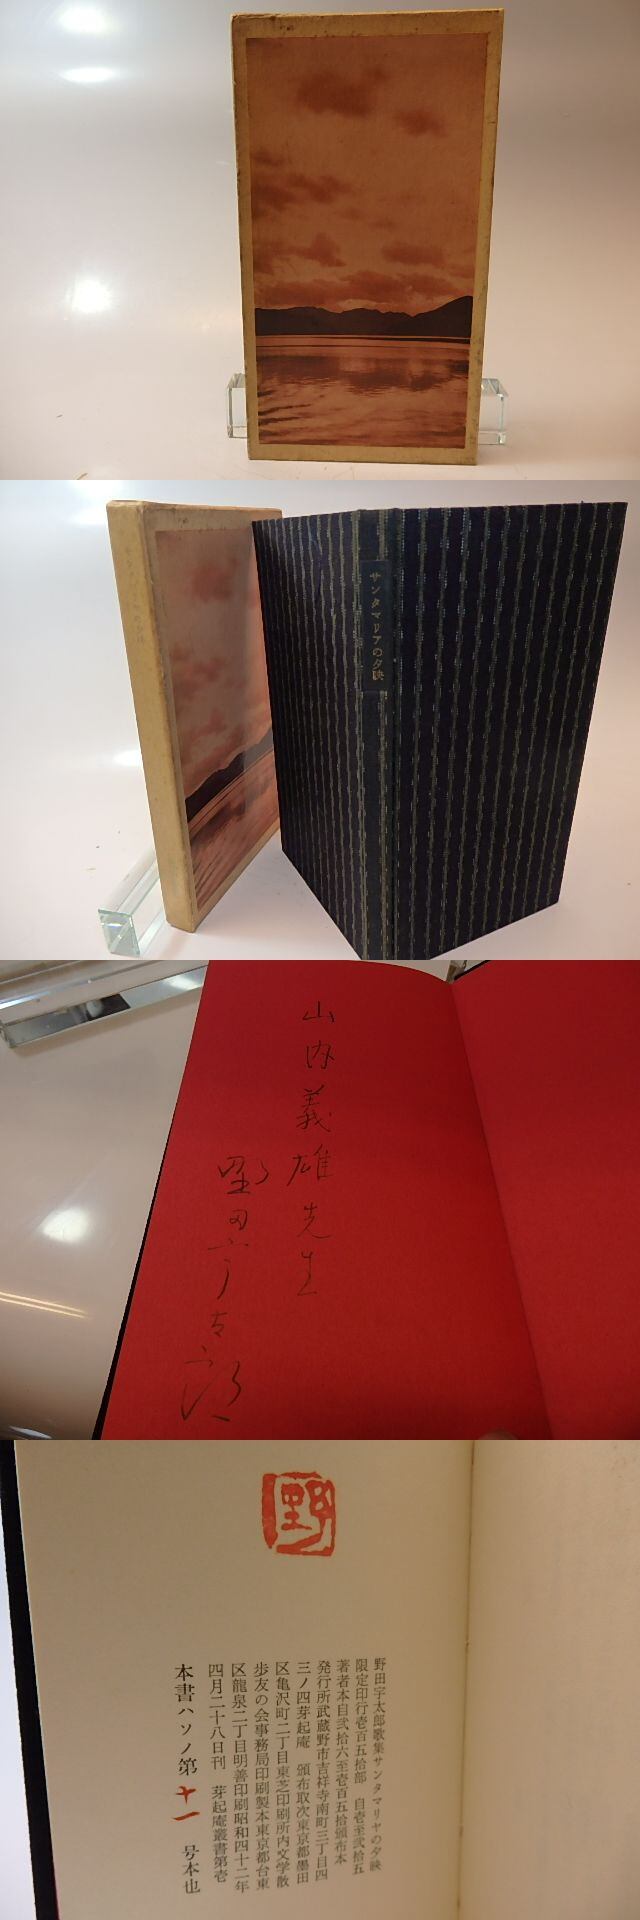 サンタマリアの夕映
山内義雄先生
野田宇太郎
野
野田宇太郎歌集サンタマリヤの夕映
限定印行壱百五拾部　自壱至弐拾五
著者本自弐拾六至壱百五拾頒布本
発行所武蔵野市吉祥寺南町三丁目四
三ノ四芽起庵　頒布取次東京都墨田
区亀沢町二丁目東芝印刷所内文学散
歩友の会事務局印刷製本東京都台東
区龍泉二丁目明善印刷昭和四十二年
四月二十八日刊　芽起庵叢書第壱
本書ハソノ第十一号本也